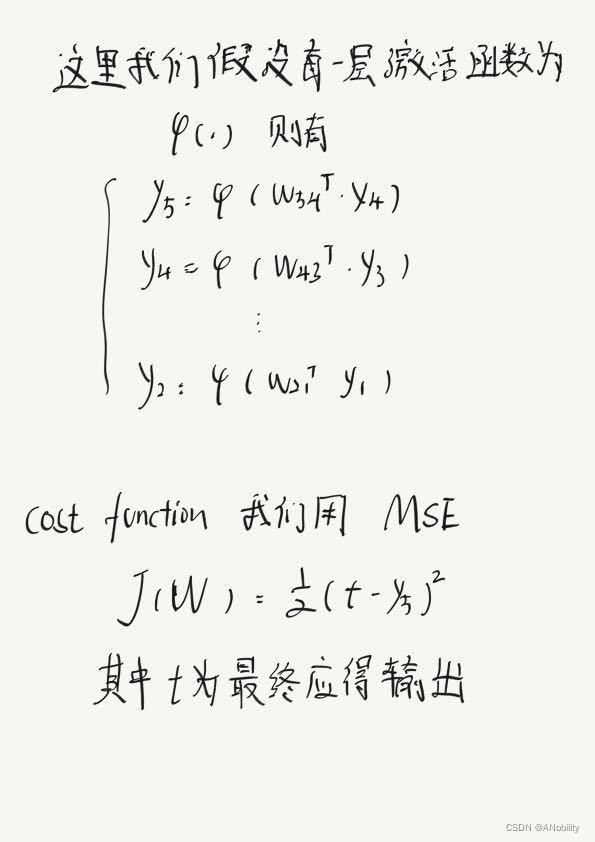 这里我们假设有一层激活函数为
φ(·) 则有
y₅ = φ(w₃₄ᵀ·y₄)
y₄ = φ(w₄₃ᵀ·y₃)
⋮
y₂ = φ(w₂₁ᵀ y₁)
cost function 我们用 MSE
J(W) = ½(t-y₅)²
其中 t 为最终应得输出
CSDN @ANobility